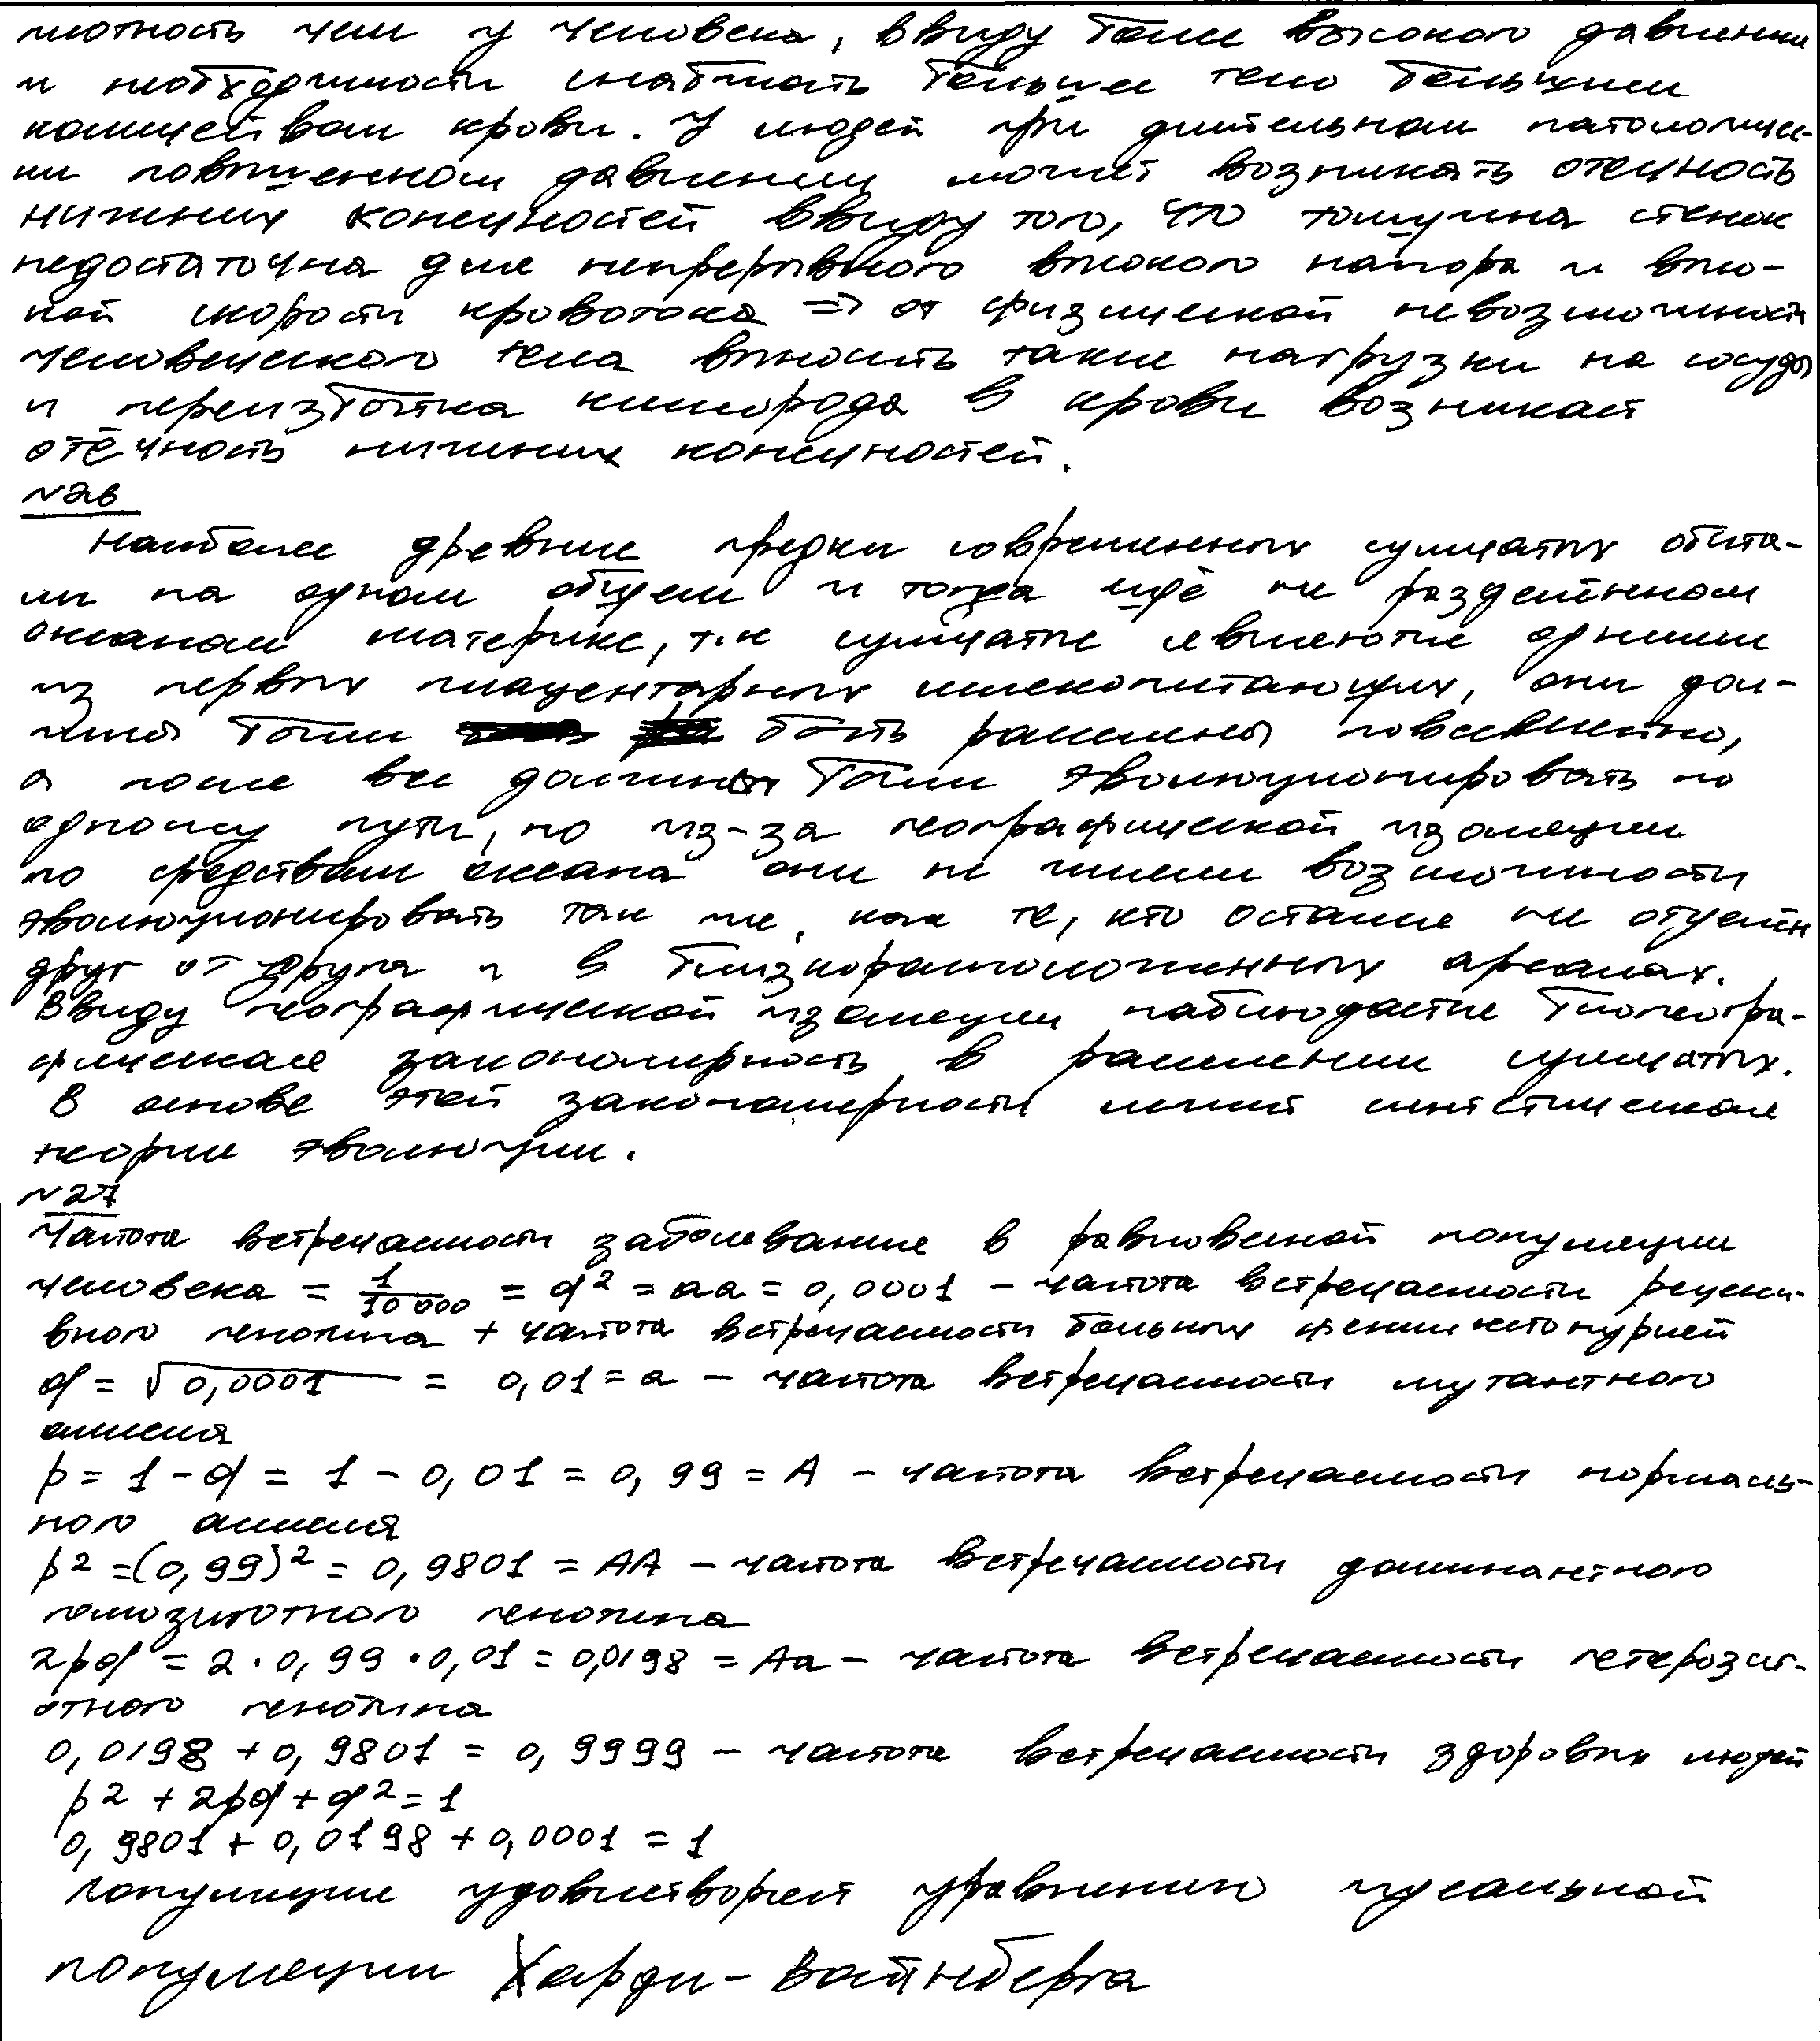 плотность чем у человека, ввиду более высокого давления
и необходимости снабжать большее тело большим
количеством крови. У людей при длительном патологичес-
ки повышенном давлении может возникать отечность
нижних конечностей ввиду того, что толщина стенок
недостаточна для непрерывного высокого напора и высо-
кой скорости кровотока => от физической невозможности
человеческого тела выносить такие нагрузки на сосуды
и переизбытка кислорода в крови возникает
отёчность нижних конечностей.
№26
Наиболее древние предки современных сумчатых обита-
ли на одном общем и тогда ещё не разделённом
океаном материке, т.к сумчатые являются одними
из первых плацентарных млекопитающих, они дол-
жны были быть расселены повсеместно,
а после все должны были эволюционировать по
одному пути, но из-за географической изоляции
по средствам океана они не имели возможности
эволюционировать так же, как те, кто остались не отделён
друг от друга и в близкорасположенных ареалах.
Ввиду географической изоляции наблюдается биогеогра-
фическая закономерность в расселении сумчатых.
В основе этой закономерности лежит синтетическая
теория эволюции.
№27
Частота встречаемости заболевания в равновесной популяции
человека = 1/10 000 = q² = aa = 0,0001 – частота встречаемости рецесси-
вного генотипа + частота встречаемости больных фенилкетонурией
q = √0,0001 = 0,01 = a – частота встречаемости мутантного
аллеля
p = 1 – q = 1 – 0,01 = 0,99 = A – частота встречаемости нормаль-
ного аллеля
p² = (0,99)² = 0,9801 = AA – частота встречаемости доминантного
гомозиготного генотипа
2pq = 2 · 0,99 · 0,01 = 0,0198 = Aa – частота встречаемости гетерозиг-
отного генотипа
0,0198 + 0,9801 = 0,9999 – частота встречаемости здоровых людей
p² + 2pq + q² = 1
0,9801 + 0,0198 + 0,0001 = 1
популяция удовлетворяет уравнению идеальной
популяции Харди – Вайнберга